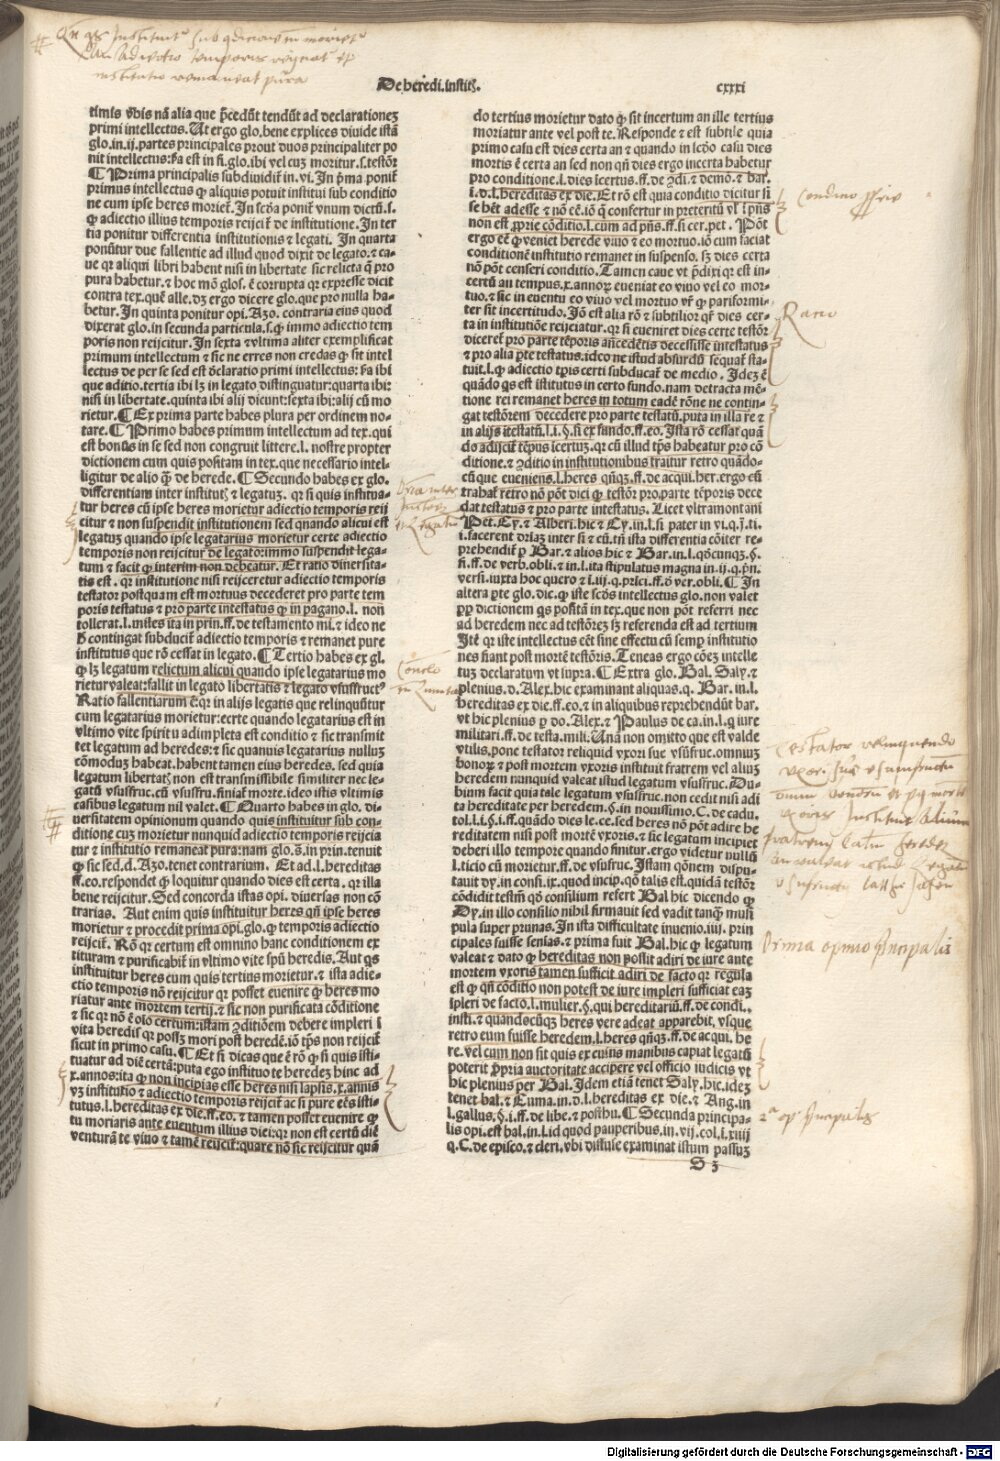 De heredi.instit̄.
cxxxi
timis v̄bis nā alia que p̄cedūt tendūt ad declarationeꝫ
primi intellectus. Ut ergo glo. bene explices diuide istā
glo. in .ij. partes principales prout duos principaliter po
nit intellectus: s̄a est in fi. glo. ibi vel cuꝫ moritur. s. testōr
¶ Prima principalis subdiuidit̄ in .vi. In p̄ma ponit̄
primus intellectus ꝙ aliquis potuit institui sub conditio
ne cum ipse heres moriet̄. In scōa ponit vnum dictū. s.
ꝙ adiectio illius temporis reijcit̄ de institutione. In ter
tia ponitur differentia institutionis ⁊ legati. In quarta
ponūtur due fallentie ad illud quod dixit de legato. ⁊ ca-
ue qꝛ aliqui libri habent nisi in libertate sic relicta q̄ pro
pura habetur. ⁊ hoc mō glos. ē corrupta qꝛ expresse dicit
contra tex. quē alle. dꝫ ergo dicere glo. que pro nulla ha-
betur. In quinta ponitur opi. Azo. contraria eius quod
dixerat glo. in secunda particula. s. ꝙ immo adiectio tem
poris non reijcitur. In sexta ⁊ vltima aliter exemplificat
primum intellectum ⁊ sic ne erres non credas ꝙ sit intel
lectus de per se sed est declaratio primi intellectus: s̄a ibi
que aditio. tertia ibi lꝫ in legato distinguatur: quarta ibi:
nisi in libertate. quinta ibi alij dicunt: sexta ibi: alij cū mo
rietur. ¶ Ex prima parte habes plura per ordinem no-
tare. ¶ Primo habes primum intellectum ad tex. qui
est bonus in se sed non congruit littere. l. nostre propter
dictionem cum quis positam in tex. que necessario intel-
ligitur de alio q̄ȝ de herede. ¶ Secundo habes ex glo.
differentiam inter institut̄ꝫ ⁊ legatuꝫ. qꝛ si quis institua-
tur heres cū ipse heres morietur adiectio temporis reij
citur ⁊ non suspendit institutionem sed quando alicui est
legatuꝫ quando ipse legatarius morietur certe adiectio
temporis non reijcitur de legato: immo suspendit lega-
tum ⁊ facit ꝙ interim non debeatur. Et ratio diuersita-
tis est. qꝛ institutione nisi reijceretur adiectio temporis
testator postquam est mortuus decederet pro parte tem
poris testatus ⁊ pro parte intestatus ꝙ in pagano. l. non
tollerat. l. miles ita in prin. ff. de testamento mi. ⁊ ideo ne
h̄ contingat subducit̄ adiectio temporis ⁊ remanet pure
institutus que rō cessat in legato. ¶ Tertio habes ex gl.
ꝙ lꝫ legatum relictum alicui quando ipse legatarius mo
rietur valeat: fallit in legato libertatis ⁊ legato vsufruct⁹
Ratio fallentiarum ē: qꝛ in alijs legatis que relinquūtur
cum legatarius morietur: certe quando legatarius est in
vltimo vite spiritu adimpleta est conditio ⁊ sic transmit
tet legatum ad heredes: ⁊ sic quanuis legatarius nulluꝫ
cōmoduꝫ habeat. habent tamen eius heredes. sed quia
legatum libertat̄ non est transmissibile similiter nec le-
gatū vsufruc. cū vsufru. finiat̄ morte. ideo istis vltimis
casibus legatum nil valet. ¶ Quarto habes in glo. di-
uersitatem opinionum quando quis instituitur sub con-
ditione cuꝫ morietur nunquid adiectio temporis reijcia
tur ⁊ institutio remaneat pura: nam glo. s̄. in prin. tenuit
ꝙ sic sed. d. Azo. tenet contrarium. Et ad. l. hereditas
ff. eo. respondet ꝙ loquitur quando dies est certa. qꝛ illa
bene reijcitur. Sed concorda istas opi. diuersas non cō
trarias. Aut enim quis instituitur heres qn̄ ipse heres
morietur ⁊ procedit prima opi. glo. ꝙ temporis adiectio
reijcit̄. Rō qꝛ certum est omnino hanc conditionem ex
tituram ⁊ purificabit̄ in vltimo vite spū heredis. Aut q̄s
instituitur heres cum quis tertius morietur. ⁊ ista adie-
ctio temporis nō reijcitur qꝛ posset euenire ꝙ heres mo
riatur ante mortem tertij. ⁊ sic non purificata cōditione
⁊ sic qꝛ nō ē oīo certum: istam ↄditiōem debere impleri ī
vita heredis qꝛ possꝫ mori post heredē. iō tp̄s non reijcit̄
sicut in primo casu. ¶ Et si dicas que ē rō ꝙ si quis isti-
tuatur ad diē certā: puta ego instituo te heredeꝫ hinc ad
.x. annos: ita ꝙ non incipias esse heres nisi lapsis. x. annis
vꝫ institutio ⁊ adiectio temporis reijcit̄ ac si pure eēs īsti-
tutus. l. hereditas ex die. ff. eo. ⁊ tamen posset euenire ꝙ
tu moriaris ante euentum illius diei: qꝛ non est certū diē
venturā te viuo ⁊ tamē reijcit̄: quare nō sic reijcitur quā
do tertius morietur dato ꝙ sit incertum an ille tertius
moriatur ante vel post te. Responde ⁊ est subtile quia
primo casu est dies certa an ⁊ quando in scd̄o casu dies
mortis ē certa an sed non qn̄ dies ergo incerta habetur
pro conditione. l. dies īcertus. ff. de ↄdi. ⁊ demō. ⁊ bar.
i. d. l. hereditas ex die. Et rō est quia conditio dicitur si
se hēt adesse ⁊ nō eē. iō q̄ consertur in preteritū vl̄ ī p̄ns
non est p̄prie cōditio. l. cum ad p̄ns. ff. si cer. pet. Pōt
ergo eē ꝙ veniet herede viuo ⁊ eo mortuo. iō cum faciat
conditionē institutio remanet in suspenso. sꝫ dies certa
nō pōt censeri conditio. Tamen caue vt p̄dixi qꝛ est in-
certū an tempus. x. annoꝝ eueniat eo viuo vel eo mor-
tuo. ⁊ sic in euentu eo viuo vel mortuo vr̄ ꝙ pariformi-
ter sit incertitudo. Iō est alia rō ⁊ subtilior qꝛ dies cer-
ta in institutiōe reijciatur. qꝛ si eueniret dies certe testōr
diceret̄ pro parte tēporis an̄cedētis decessisse intestatus
⁊ pro alia p̄te testatus. ideo ne istud absurdū sequat̄ sta-
tuit. l. ꝙ adiectio tp̄is certi subducat̄ de medio. Ideꝫ ē
quādo q̄s est istitutus in certo fundo. nam detracta mē-
tione rei remanet heres in totum eadē rōne ne contin-
gat testōrem decedere pro parte testatū. puta in illa re ⁊
in alijs ītestatū. l. i. §. si ex fundo. ff. eo. Ista rō cessat quā
do adijcit̄ tēpus īcertuꝫ. qꝛ cū illud tp̄s habeatur pro cō
ditione. ⁊ ↄditio in institutionibus traitur retro quādo-
cūque eueniens. l. heres qn̄qꝫ. ff. de acqui. her. ergo cū
trahat̄ retro nō pōt dici ꝙ testōr pro parte tēporis dece
dat testatus ⁊ pro parte intestatus. Licet vltramontani
Pet. Cy. ⁊ Alberi. hic ⁊ Cy. in. l. si pater in vi. q. j. ti.
i. facerent dr̄iaꝫ inter si ⁊ cū. tn̄ ista differentia cōiter re-
prehendit̄ p̄ Bar. ⁊ alios hic ⁊ Bar. in. l. qōcunqꝫ. §.
fi. ff. de verb. obli. ⁊ in. l. ita stipulatus magna in .ij. q. p̄n.
versi. iuxta hoc quero ⁊ l. iij. q. prīci. ff. d̄ ver. obli. ¶ In
altera p̄te glo. dic. ꝙ iste scd̄s intellectus glo. non valet
ꝓp̄ dictionem q̄s positā in tex. que non pōt referri nec
ad heredem nec ad testōreꝫ sꝫ referenda est ad tertium
Itē qꝛ iste intellectus eēt sine effectu cū semꝑ institutio
nes fiant post mortē testōris. Teneas ergo cōeꝫ intelle
tuꝫ declaratum vt supra. ¶ Extra glo. Bal. Saly. ⁊
plenius. d. Alex. hic examinant aliquas. q. Bar. in. l.
hereditas ex die. ff. eo. ⁊ in aliquibus reprehendūt bar.
vt hic plenius ꝑ do. Alex. ⁊ Paulus de ca. in. l. q̄ iure
militari. ff. de testa. mili. Unā non omitto que est valde
vtilis. pone testator reliquid vxori sue vsūfruc. omniuꝫ
bonoꝝ ⁊ post mortem vxoris instituit fratrem vel aliuꝫ
heredem nunquid valeat istud legatum vsufruc. Du-
bium facit quia tale legatum vsufruc. non cedit nisi adi
ta hereditate per heredem. §. in nouissimo. C. de cadu.
tol. l. i. §. i. ff. quādo dies le. ce. sed heres nō pōt adire he
reditatem nisi post mortē vxoris. ⁊ sic legatum incipiet
deberi illo tempore quando finitur. ergo videtur nullū
l. ticio cū morietur. ff. de vsufruc. Istam qōnem dispu-
tauit dy. in consi. ix. quod incip. qō talis est. quidā testōr
cōdidit testm̄ qō consilium refert Bal hic dicendo ꝙ
Dy. in illo consilio nihil firmauit sed vadit tanq̄ȝ musi
pula super prunas. In ista difficultate inuenio. iiij. prin
cipales fuisse senīas. ⁊ prima fuit Bal. hic ꝙ legatum
valeat ⁊ dato ꝙ hereditas non possit adiri de iure ante
mortem vxoris tamen sufficit adiri de facto qꝛ regula
est ꝙ qn̄ cōditio non potest de iure impleri sufficiat eaꝫ
īpleri de facto. l. mulier. §. qui hereditariū. ff. de condi.
insti. ⁊ quandocūqꝫ heres vere adeat apparebit. vsque
retro eum fuisse heredem. l. heres qn̄qꝫ. ff. de acqui. he
re. vel cum non sit quis ex cuius manibus capiat legatū
poterit p̄pria auctoritate accipere vel officio iudicis vt
hic plenius per Bal. Idem etiā tenet Saly. hic. ideꝫ
tenet bal. ⁊ Cuma. in. d. l. hereditas ex die. ⁊ Ang. in
l. gallus. §. i. ff. de libe. ⁊ posthu. ¶ Secunda principa-
lis opi. est bal. in. l. id quod pauperibus. in. vij. col. i. xiiij
q. C. de episco. ⁊ cleri. vbi diffuse examinat istum passuꝫ
S 3
Ratio
Prima opinio principalis
2ª op principalis
Digitalisierung gefördert durch die Deutsche Forschungsgemeinschaft - DFG